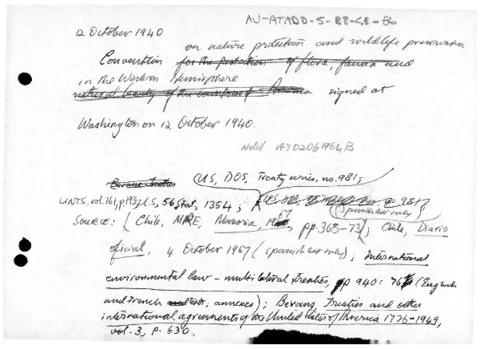 12 October 1940
on nature protection and wildlife preservation
Convention for the protection of flora, fauna and
in the Western Hemisphere
natural beauty of the countries of America signed at
Washington on 12 October 1940.
US, DOS, Treaty series, no. 981;
Bevans Treaties
UNTS, vol. 161, p. 193; U.S, 56 Stat, 1354;
(Spanish text only)
SOURCE: Chile, MRE, Memoria, 1967, pp. 365-73; Chile, Diario
oficial, 4 October 1967 (Spanish text only); International
environmental law - multilateral treaties, pp 940: 76 (English
and French text, annexes); Bevans, Treaties and other
international agreements of the United States of America 1776-1949,
vol. 3, p. 630.